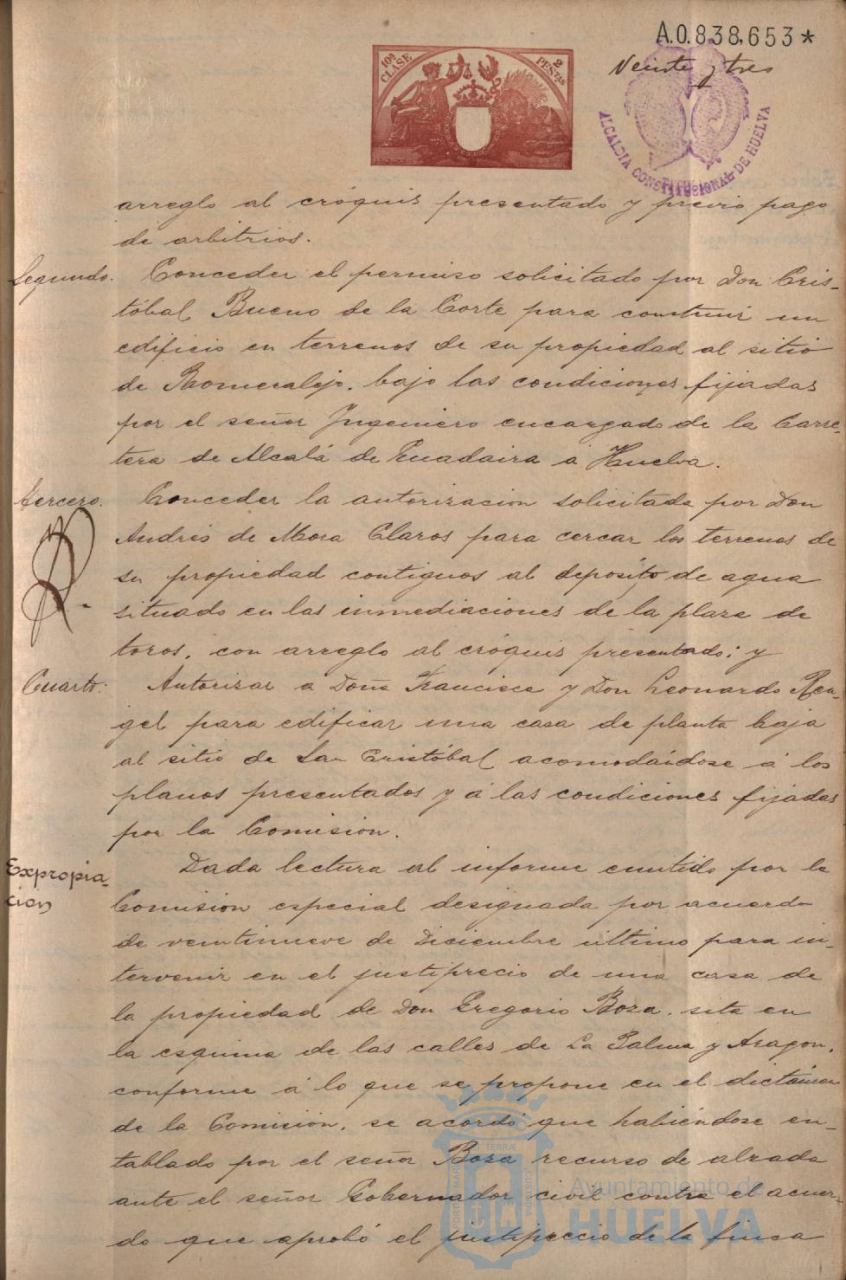 A.0.838.653*
10ª CLASE
2 PESTAS
Veinte y tres
ALCALDIA CONSTITUCIONAL DE HUELVA
arreglo al cróquis presentado y previo pago
de arbitrios.
Segundo. Conceder el permiso solicitado por Don Cris-
tóbal Bueno de la Corte para construir un
edificio en terrenos de su propiedad al sitio
de Romeralejo, bajo las condiciones fijadas
por el señor Ingeniero encargado de la Carre-
tera de Alcalá de Guadaira a Huelva.
tercero. Conceder la autorizacion solicitada por Don
Andrés de Mora Claros para cercar los terrenos de
su propiedad contiguos al deposito de agua
situado en las inmediaciones de la plaza de
toros, con arreglo al cróquis presentado; y
Cuarto. Autorizar a Doña Francisca y Don Leonardo Ran-
gel para edificar una casa de planta baja
al sitio de San Cristóbal acomodándose á los
planos presentados y á las condiciones fijadas
por la Comision.
Expropia-
cion
Dada lectura al informe emitido por la
Comision especial designada por acuerdo
de veintinueve de Diciembre último para in-
tervenir en el justiprecio de una casa de
la propiedad de Don Gregorio Boza, sita en
la esquina de las calles de La Palma y Aragon,
conforme á lo que se propone en el dictámen
de la Comision, se acordó que habiéndose en-
tablado por el señor Boza recurso de alzada
ante el señor Gobernador civil contra el acuer-
do que aprobó el justiprecio de la finca
Ayuntamiento de
HUELVA